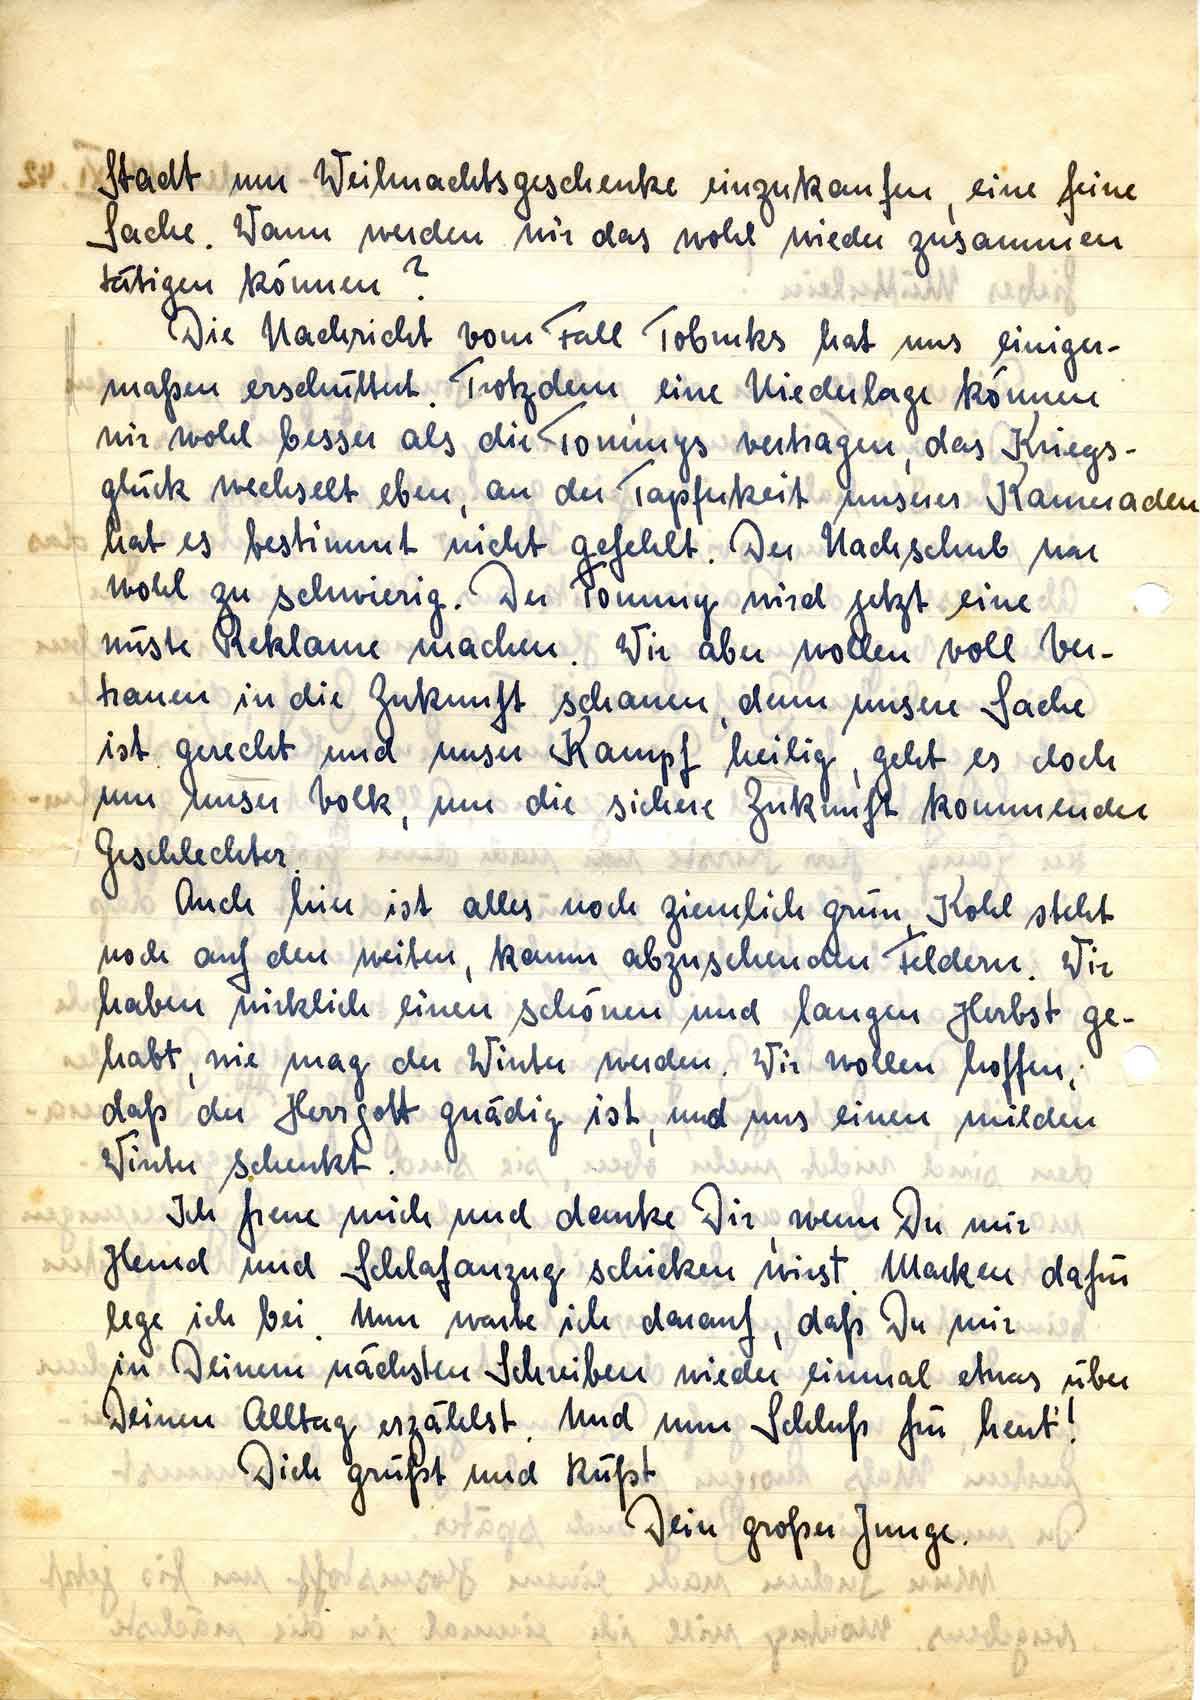 Stadt um Weihnachtsgeschenke einzukaufen, eine feine
Sache. Wann werden wir das wohl wieder zusammen
tätigen können?
Die Nachricht vom Fall Tobruks hat uns einiger-
maßen erschüttert. Trotzdem, eine Niederlage können
wir wohl besser als die Tommys vertragen, das Kriegs-
glück wechselt eben, an der Tapferkeit unserer Kameraden
hat es bestimmt nicht gefehlt. Der Nachschub war
wohl zu schwierig. Der Tommy wird jetzt eine
wüste Reklame machen. Wir aber wollen voll Ver-
trauen in die Zukunft schauen, denn unsere Sache
ist gerecht und unser Kampf heilig, geht es doch
um unser Volk, um die sichere Zukunft kommender
Geschlechter.
Auch hier ist alles noch ziemlich grün, Kohl steht
noch auf den weiten, kaum abzusehenden Feldern. Wir
haben wirklich einen schönen und langen Herbst ge-
habt, wie mag der Winter werden. Wir wollen hoffen,
daß der Herrgott gnädig ist, und uns einen milden
Winter schenkt.
Ich freue mich und danke Dir, wenn Du mir
Hemd und Schlafanzug schicken wirst. Marken dafür
lege ich bei. Nun warte ich darauf, daß Du mir
in Deinem nächsten Schreiben wieder einmal etwas über
Deinen Alltag erzählst. Und nun Schluß für heut'!
Dich grüßt und küßt
Dein großer Junge.